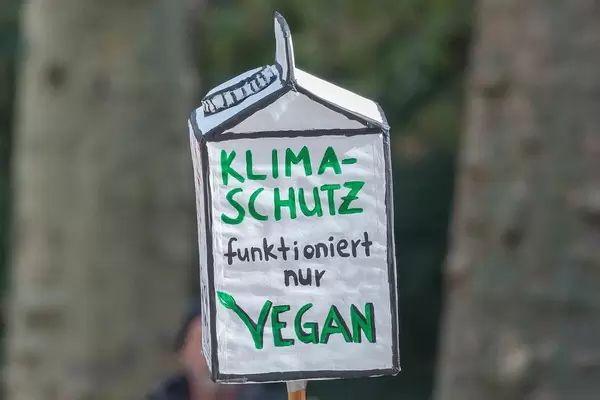 KLIMA-
SCHUTZ
funktioniert
nur
VEGAN